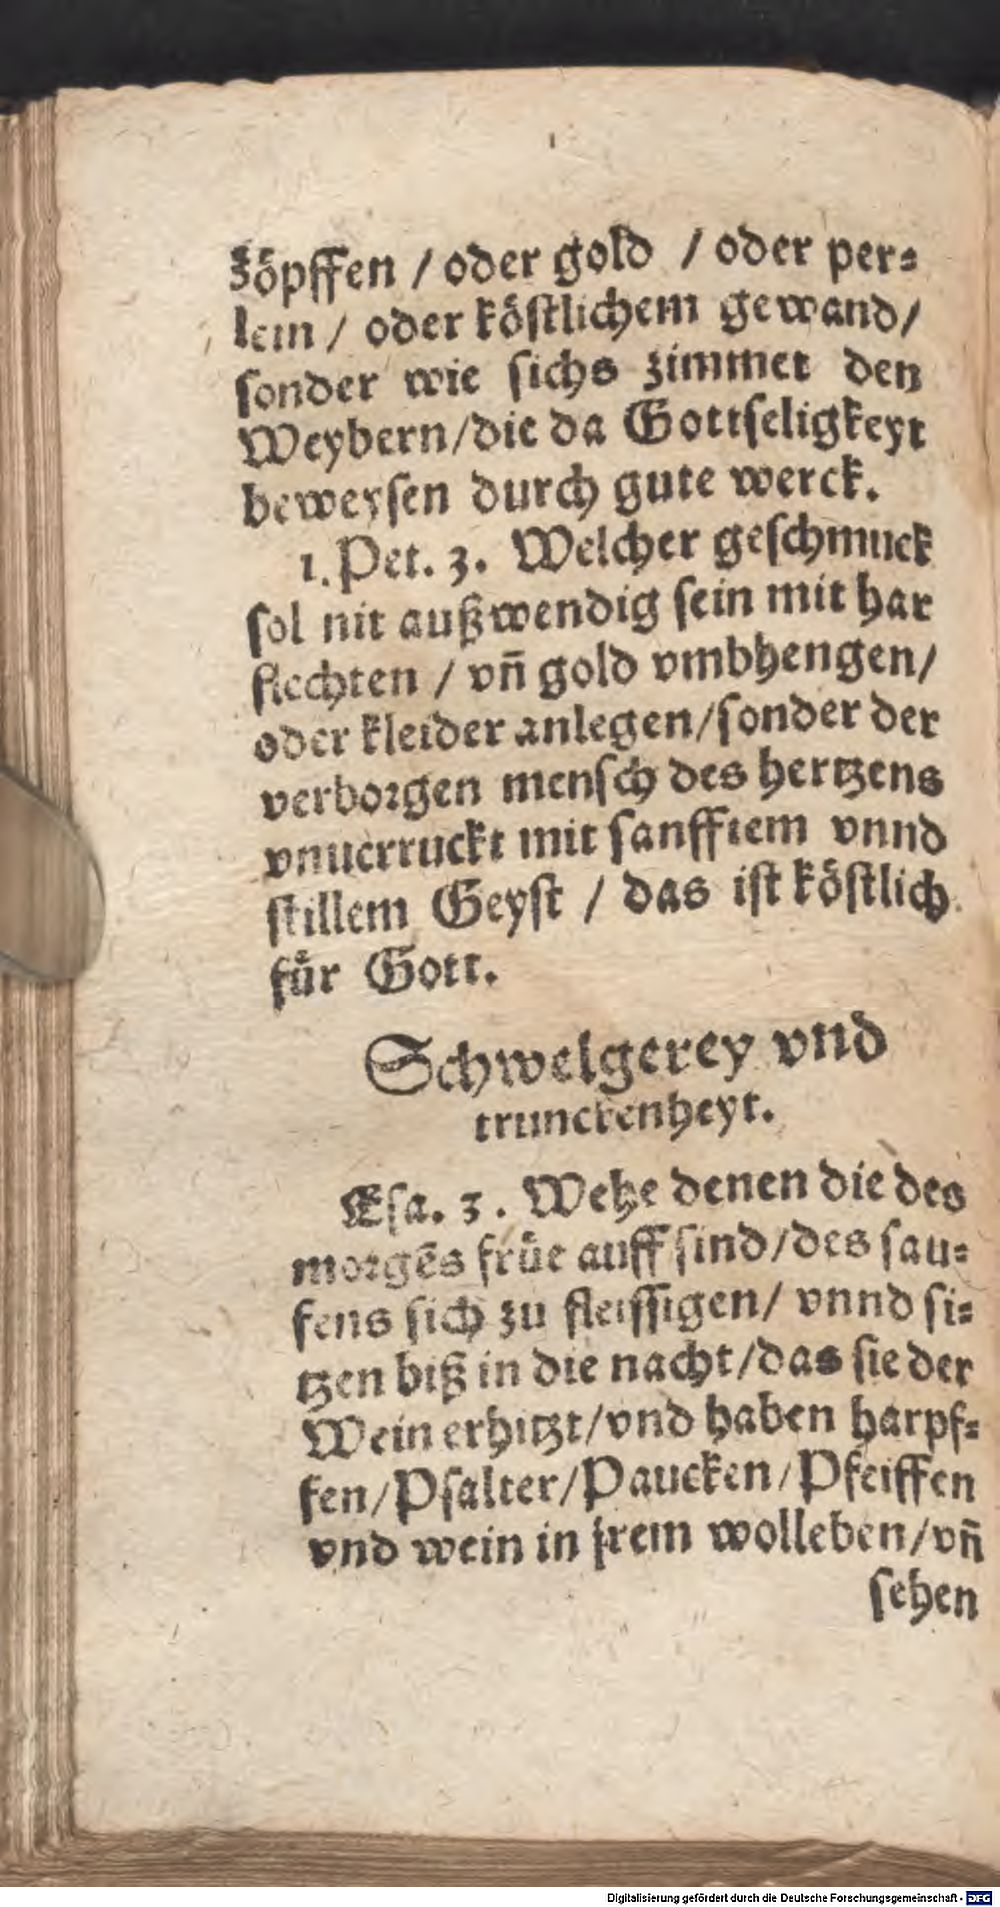 zöpffen / oder gold / oder per⸗
lein / oder köstlichem gewand/
sonder wie sichs zimmet den
Weybern/die da Gottseligkeyt
beweysen durch gute werck.
1. Pet. 3. Welcher geschmuck
sol nit außwendig sein mit har
flechten / vñ gold vmbhengen/
oder kleider anlegen/sonder der
verborgen mensch des hertzens
vnuerruckt mit sanfftem vnnd
stillem Geyst / das ist köstlich
für Gott.
Schwelgerey vnd
trunckenheyt.
Esa. 3. Wehe denen die des
morgẽs früe auff sind/des sau⸗
fens sich zu fleissigen/ vnnd si⸗
tzen biß in die nacht/das sie der
Wein erhitzt/vnd haben harpf⸗
fen/Psalter/Paucken/Pfeiffen
vnd wein in jrem wolleben/vñ
sehen
Digitalisierung gefördert durch die Deutsche Forschungsgemeinschaft - DFG